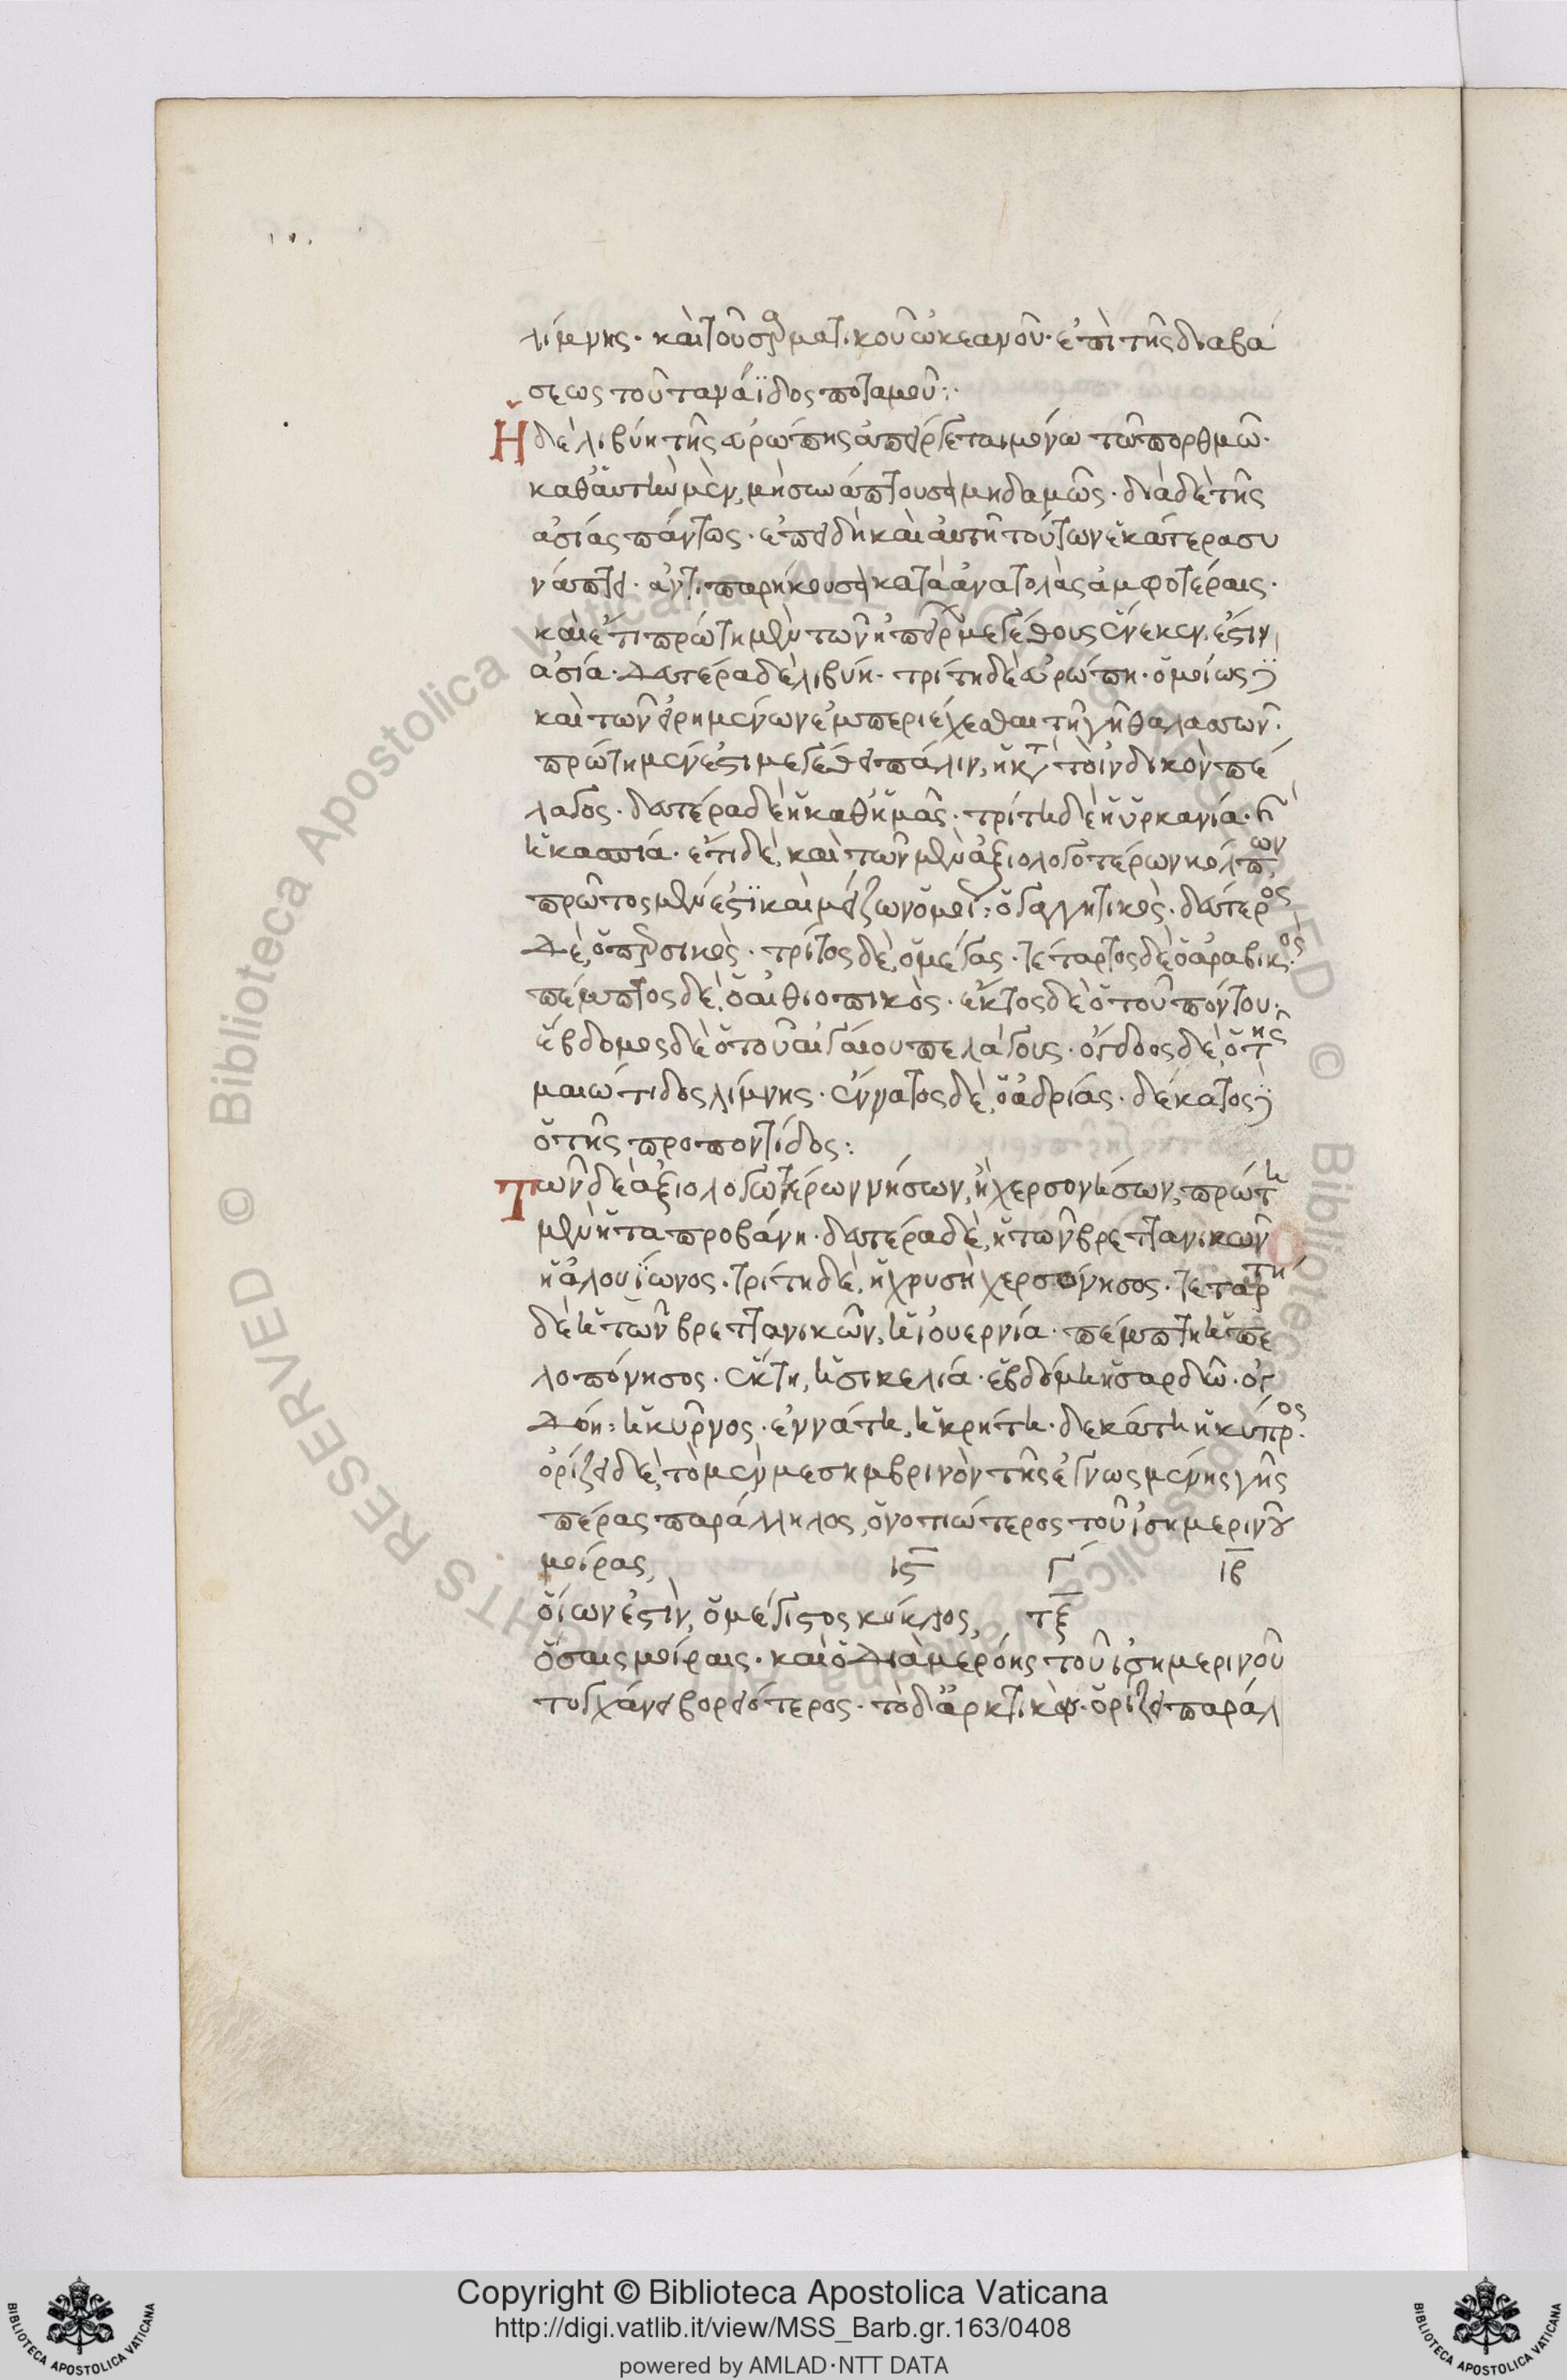 λίμνης· καὶ τοῦ σαρματικοῦ ὠκεανοῦ· ἐπὶ τῆς διαβά
σεως τοῦ ταναΐδος ποταμοῦ:·
Ἡ δὲ λιβύη τῆς εὐρώπης ἀπείργεται μόνω τῶ πορθμῶ·
καθ' ἁυτὴν μὲν, μὴ συνάπτουσα μηδαμῶς· διὰ δὲ τῆς
ἀσίας πάντως· ἐπειδὴ καὶ ἀυτὴ τούτων ἑκατέρα συ
νάπτει· ἀντιπαρήκουσα κατὰ ἀνατολὰς ἀμφοτέραις·
καὶ ἔτι πρώτη μὲν τῶν ἠπείρων μεγέθους ἕνεκεν, ἐστιν
ἀσία· δευτέρα δὲ λιβύη· τρίτη δὲ εὐρώπη· ὁμοίως δὲ
καὶ τῶν εἰρημένων ἐμπεριέχεσθαι τῆ γῆ θαλασσῶν·
πρώτη μέν ἐστι μεγέθει πάλιν, ἡ κατὰ τὸ ἰνδικὸν πέ
λαγος· δευτέρα δὲ ἡ καθ' ἡμᾶς· τρίτη δὲ ἡ ὑρκανία· ἢ
ἡ κασπία· ἔτι δὲ, καὶ τῶν μὲν ἀξιολογοτέρων κόλπων,
πρῶτος μὲν ἐστὶ καὶ μείζων ὁμοί: ὁ γαγγητικὸς· δεύτερος
δὲ, ὁ περσικὸς· τρίτος δὲ, ὁ μέγας· τέταρτος δὲ ὁ ἀραβικὸς·
πέμπτος δὲ, ὁ αἰθιοπικὸς· ἕκτος δὲ ὁ τοῦ πόντου·
ἕβδομος δὲ ὁ τοῦ αἰγαίου πελάγους· ὄγδοος δὲ, ὁ τῆς
μαιώτιδος λίμνης· ἔννατος δὲ, ὁ ἀδρίας· δέκατος δὲ
ὁ τῆς προποντίδος:
Τῶν δὲ ἀξιολογωτέρων νήσων, ἢ χερσονήσων, πρώτη
μὲν ἡ ταπροβάνη· δευτέρα δὲ, ἡ τῶν βρεττανικῶν
ἡ ἀλουΐωνος· τρίτη δὲ, ἡ χρυσῆ χερσόνησος· τετάρτη
δὲ ἡ τῶν βρεττανικῶν, ἡ ἰουερνία· πέμπτη ἡ πε
λοπόνησος· ἕκτη, ἡ σικελία· ἑβδόμη ἡ σαρδῶ· ὀγ
δόη: ἡ κύρνος· ἐννάτη, ἡ κρήτη· δεκάτη ἡ κύπρος·
ὁρίζει δὲ, τὸ μὲν μεσημβρινὸν τῆς ἐγνωσμένης γῆς
πέρας παράλληλος, ὁ νοτιώτερος τοῦ ἰσημερινοῦ
μοίρας, ις γ´ ιβ
ὁίων ἐστὶν, ὁ μέγιστος κύκλος, τξ
ὅσαις μοίραις· καὶ ὁ διὰ μερόης τοῦ ἰσημερινοῦ
τυγχάνει βορειότερος· τὸ δ' ἀρκτικὸν· ὁρίζει παράλ